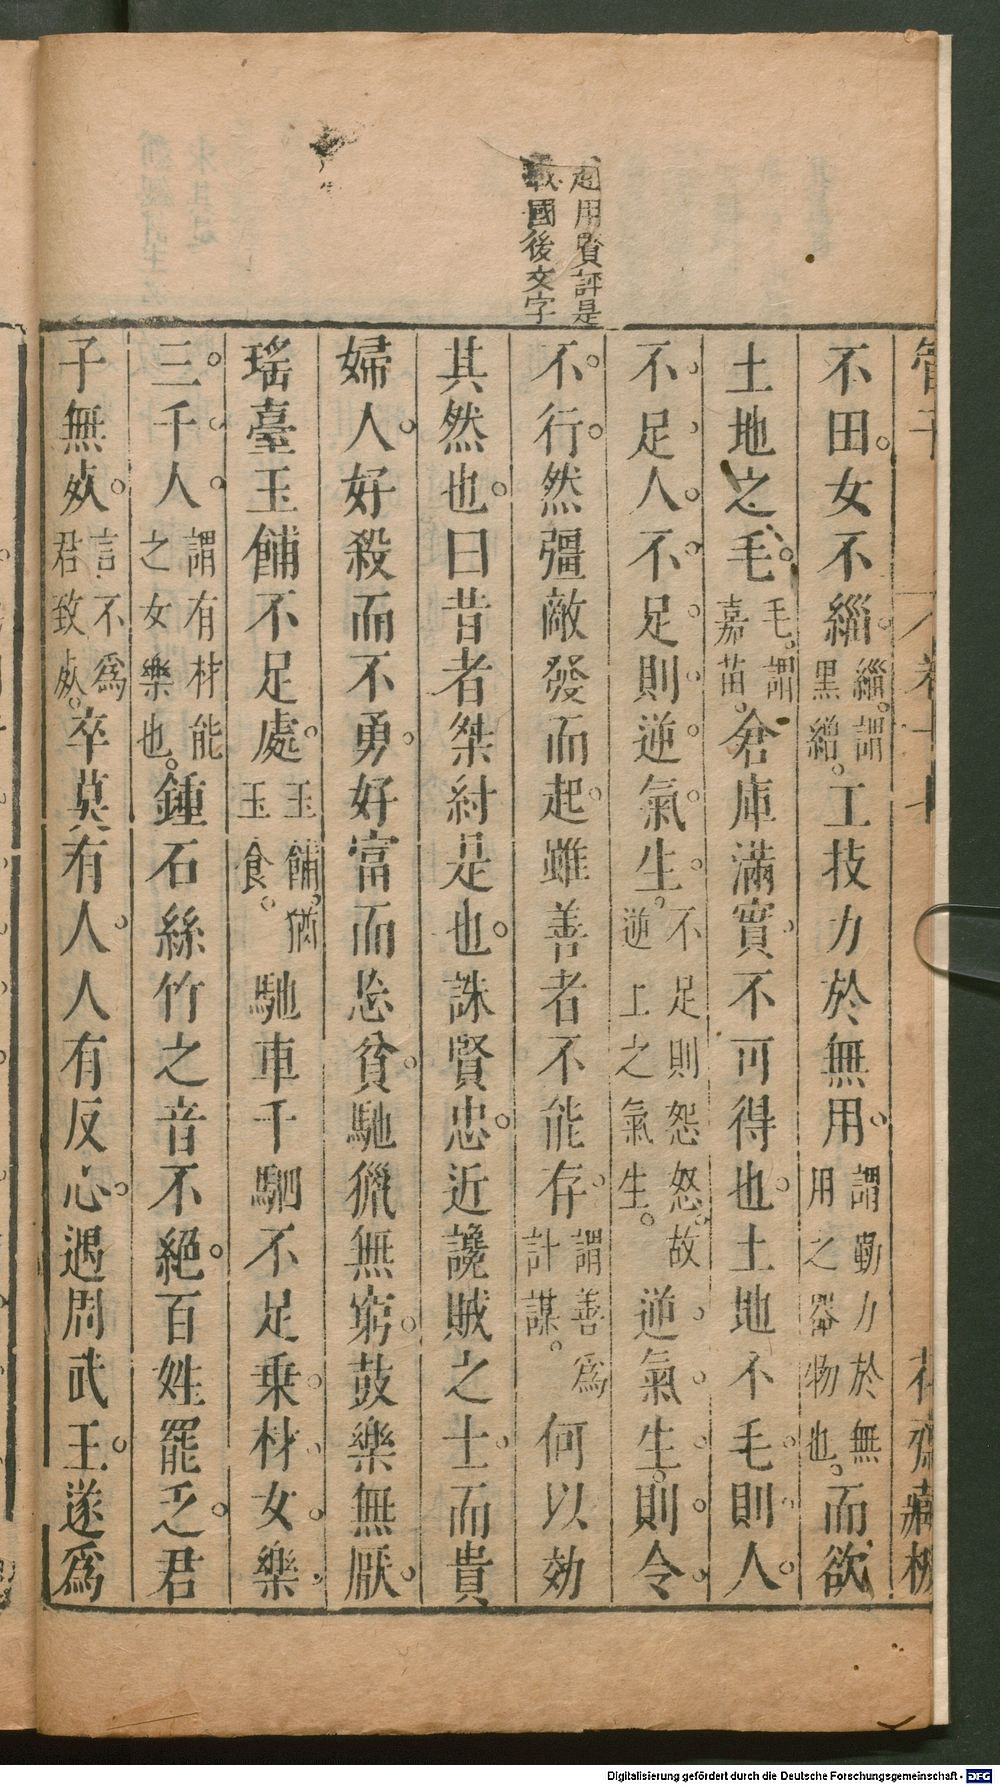 趙用賢評是
戰國後文字
管子
花齋藏板
不田。女不緇。緇謂黑繒。工技力於無用。謂勤力於無用之器物也。而欲
土地之毛。毛謂嘉苗。倉庫滿實。不可得也。土地不毛。則人。
不足。人不足。則逆氣生。不足則怨怒。故逆上之氣生。逆氣生。則令
不行。然彊敵發而起。雖善者不能存。謂善爲計謀。何以效
其然也。曰昔者桀紂是也。誅賢忠。近讒賊之士。而貴
婦人。好殺而不勇。好富而忘貧。馳獵無窮。鼓樂無厭。
瑤臺玉餔不足處。玉餔。猶玉食。馳車千駟不足乗。材女樂
三千人。謂有材能之女樂也。鍾石絲竹之音不絕。百姓罷乏。君
子無死。言不爲君致死。卒莫有人。人有反心。遇周武王。遂爲
Digitalisierung gefördert durch die Deutsche Forschungsgemeinschaft - DFG